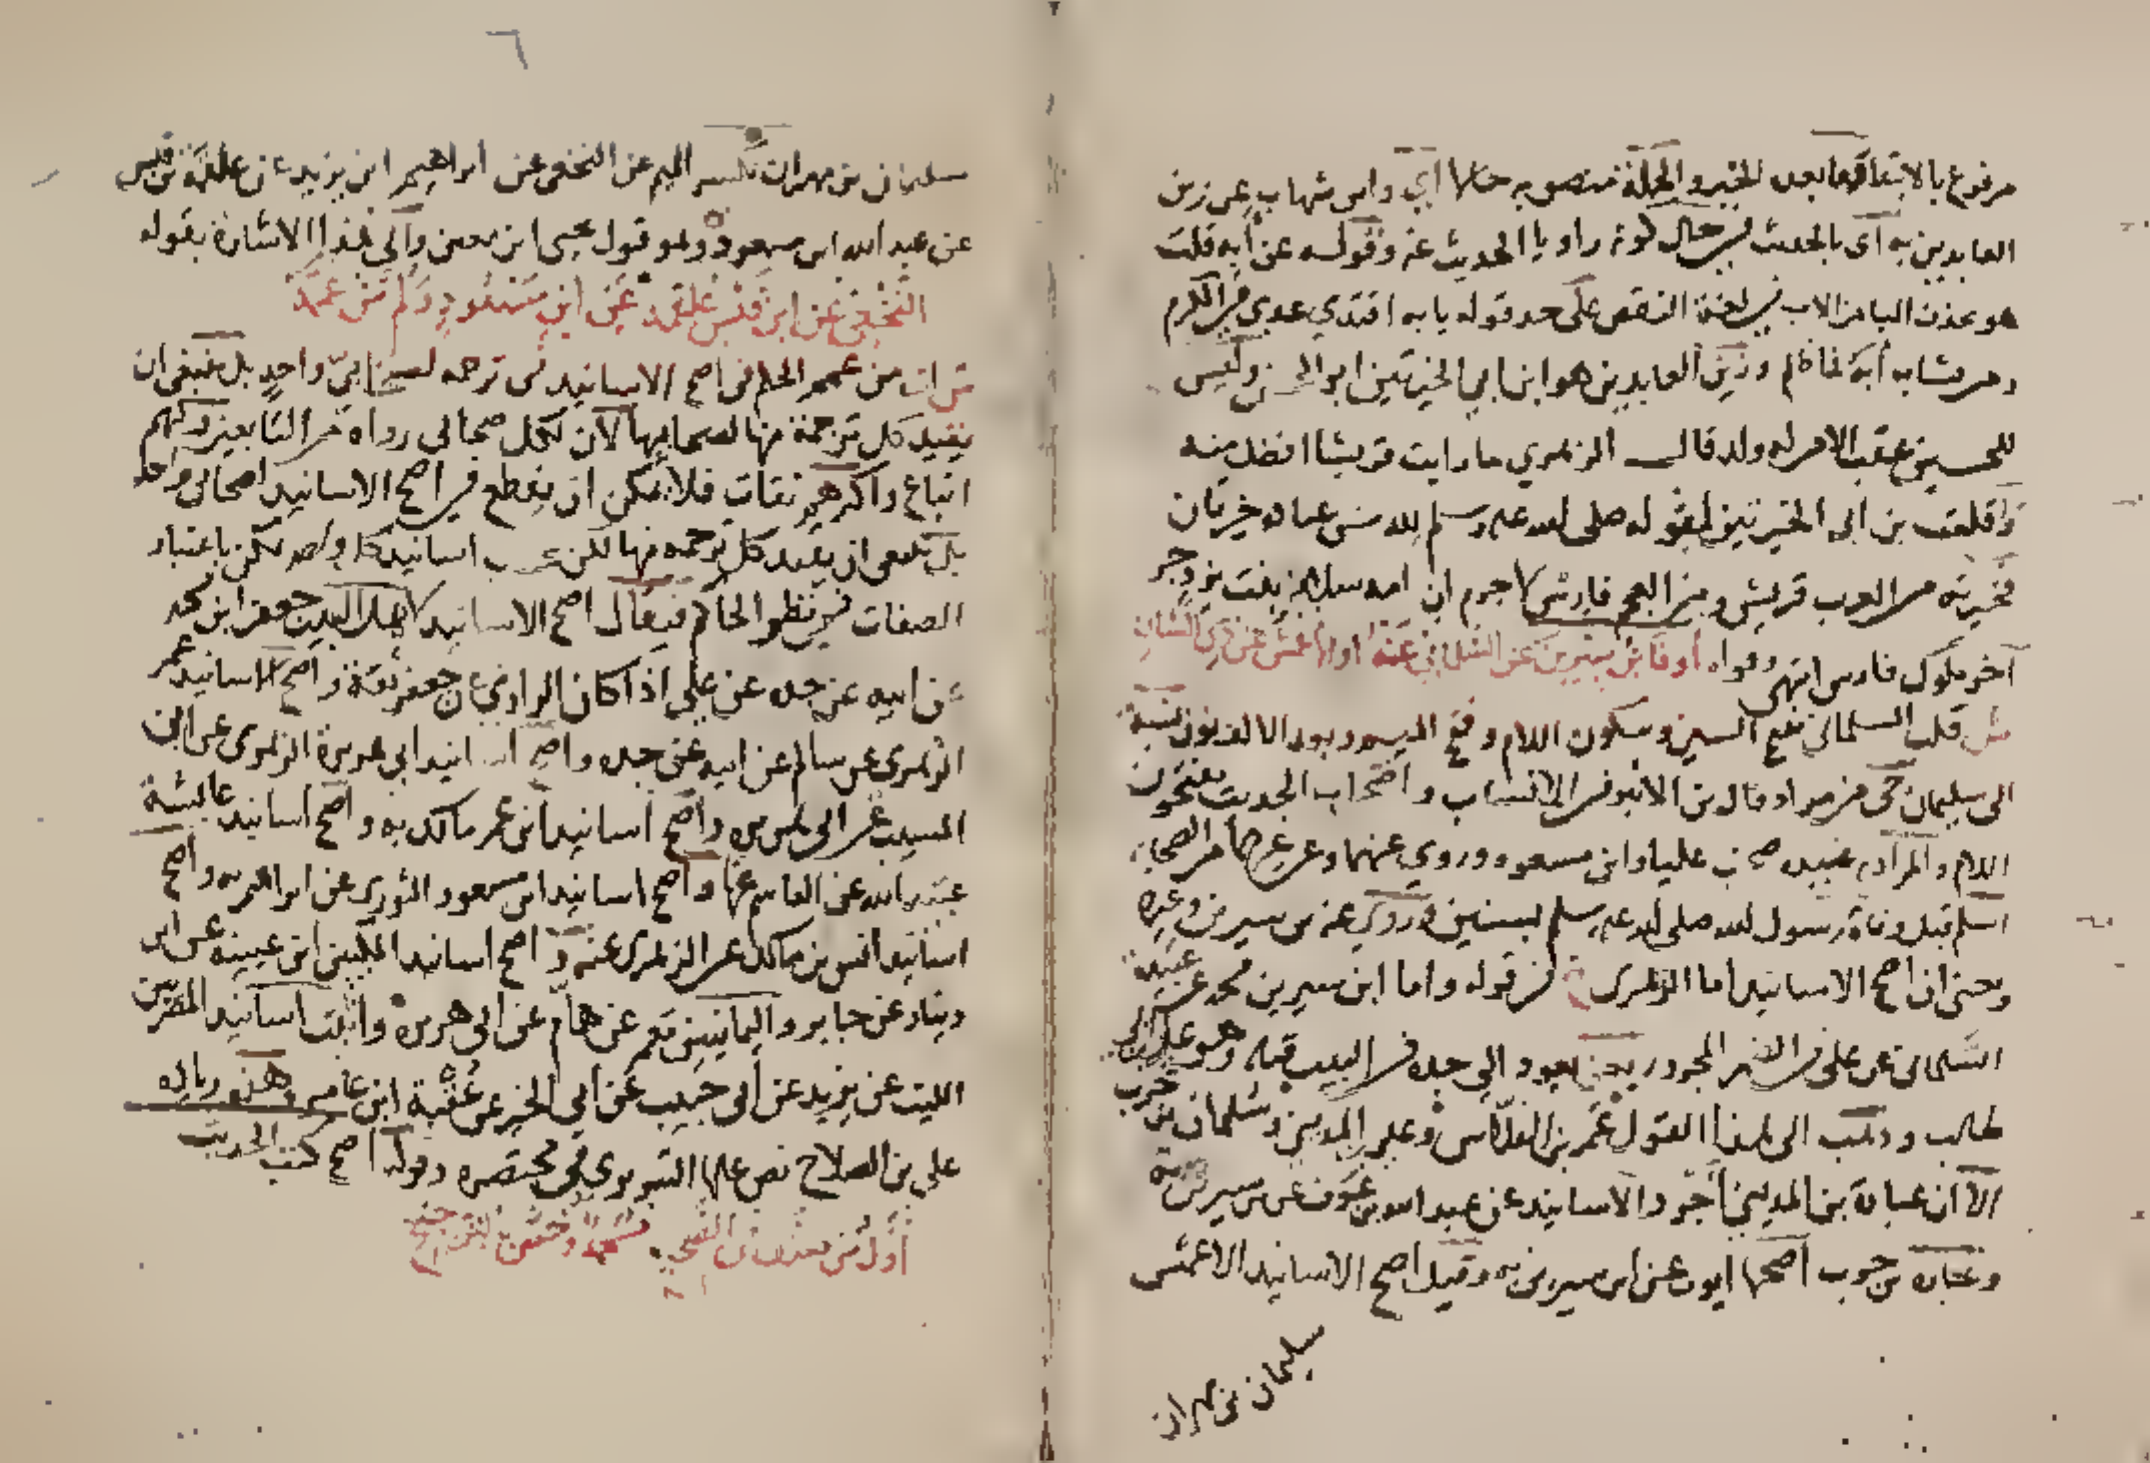 مرفوع بالابتدا وما بعده الخبر والجملة منصوبه حالا اي وابن شهاب عن زين
العابدين به اي بالحديث في حال كونه راويا الحديث عنه وقوله عن ابه قلت
هو بحذف اليا من الاب في لغة النقص على حد قوله بابه اقتدي عدي في الكرم
ومن يشابه أبه فما ظلم وزين العابدين هو ابن ابي الخيرتين ابو الحسن وليس
للحسين عقب الا من له ولد قال الزهري ما رايت قرشيا افضل منه
بن ابي الخيرتين لقوله صلى الله عليه وسلم لله من عباده خيرتان
فخيرته من العرب قريش ومن العجم فارس لا جرم ان امه بنت يزدجر
آخر ملوك فارس انتهى وقوله أو فابن سيرين عن السلماني عنه أو الأعمش عن ذي الشان
قلت السلماني بفتح السين وسكون اللام وفتح الميم وبعد الالف نون نسبة
الى سليمان حي من مراد قال بن الاثير في الانساب واصحاب الحديث يفتحون
اللام والمراد عبيده صحب عليا وابن مسعود وروي عنهما وعن غيرهما من الصحابه
اسلم قبل وفاة رسول الله صلى الله عليه وسلم بسنتين وروي عنه بن سيرين وغيره
ويحتمل ان اصح الاسانيد اما الزهري قوله واما ابن سيرين محمد عن عبيدة
السلماني عن علي في الضمير المجرور بعن يعود الي جده في البيت قبله وهو علي بن ابي
طالب وذهب الى هذا القول عمر بن الفلاس وعلي بن المديني وسليمان بن حرب
الا ان عبارة بن المديني أجود الاسانيد عن عبد الله بن عون عن بن سيرين
وعبارة بن حرب أصحها ايوب عن ابن سيرين به وقيل اصح الاسانيد الاعمش
سليمان بن مهران
٦
سليمان بن مهران بكسر الميم عن النخعي عن ابراهيم ابن يزيد عن علقمة بن قيس
عن عبد الله ابن مسعود وهو قول يحيى ابن معين والي هذا الاشارة بقوله
النخعي عن ابن قيس علقمه عن ابن مسعود ولم من عممه
من عمم الحكم في اصح الاسانيد في ترجمه لصحابي واحد بل ينبغي ان
يقيد كل ترجمة منها بصحابيها لان لكل صحابي رواة من التابعين ولهم
اتباع واكثرهم ثقات فلا يمكن ان يقطع في اصح الاسانيد لصحابي واحد
بل ينبغي ان يقيد كل ترجمه منها لكن اسانيد كل يكن باعتبار
الصفات في نظر الحاكم فيقال اصح الاسانيد لاهل البيت جعفر ابن محمد
عن ابيه عن جده عن علي اذا كان الراوي عن جعفر ثقة واصح الاسانيد عمر
الزهري عن سالم عن ابيه عن جده واصح اسانيد ابي هريرة الزهري عن ابن
المسيب عن ابي هريره واصح اسانيد ابن عمر مالك به واصح اسانيد عائشة
عبيد الله عن القاسم عنها واصح اسانيد ابن مسعود الثوري عن ابراهيم به واصح
اسانيد انس بن مالك عن الزهري عنه واصح اسانيد المكيين ابن عيينة عن ابن
دينار عن جابر واليمانيين معمر عن همام عن ابي هريره واثبت اسانيد المصريين
الليث عن يزيد عن أبي حبيب عن أبي الخير عن عقبة ابن عامر وهذه زياده
علي بن الصلاح نص عليها النووي في مختصره وقوله اصح كتب الحديث
أول من صنف في الصحيح محمد وخص بالترجيح